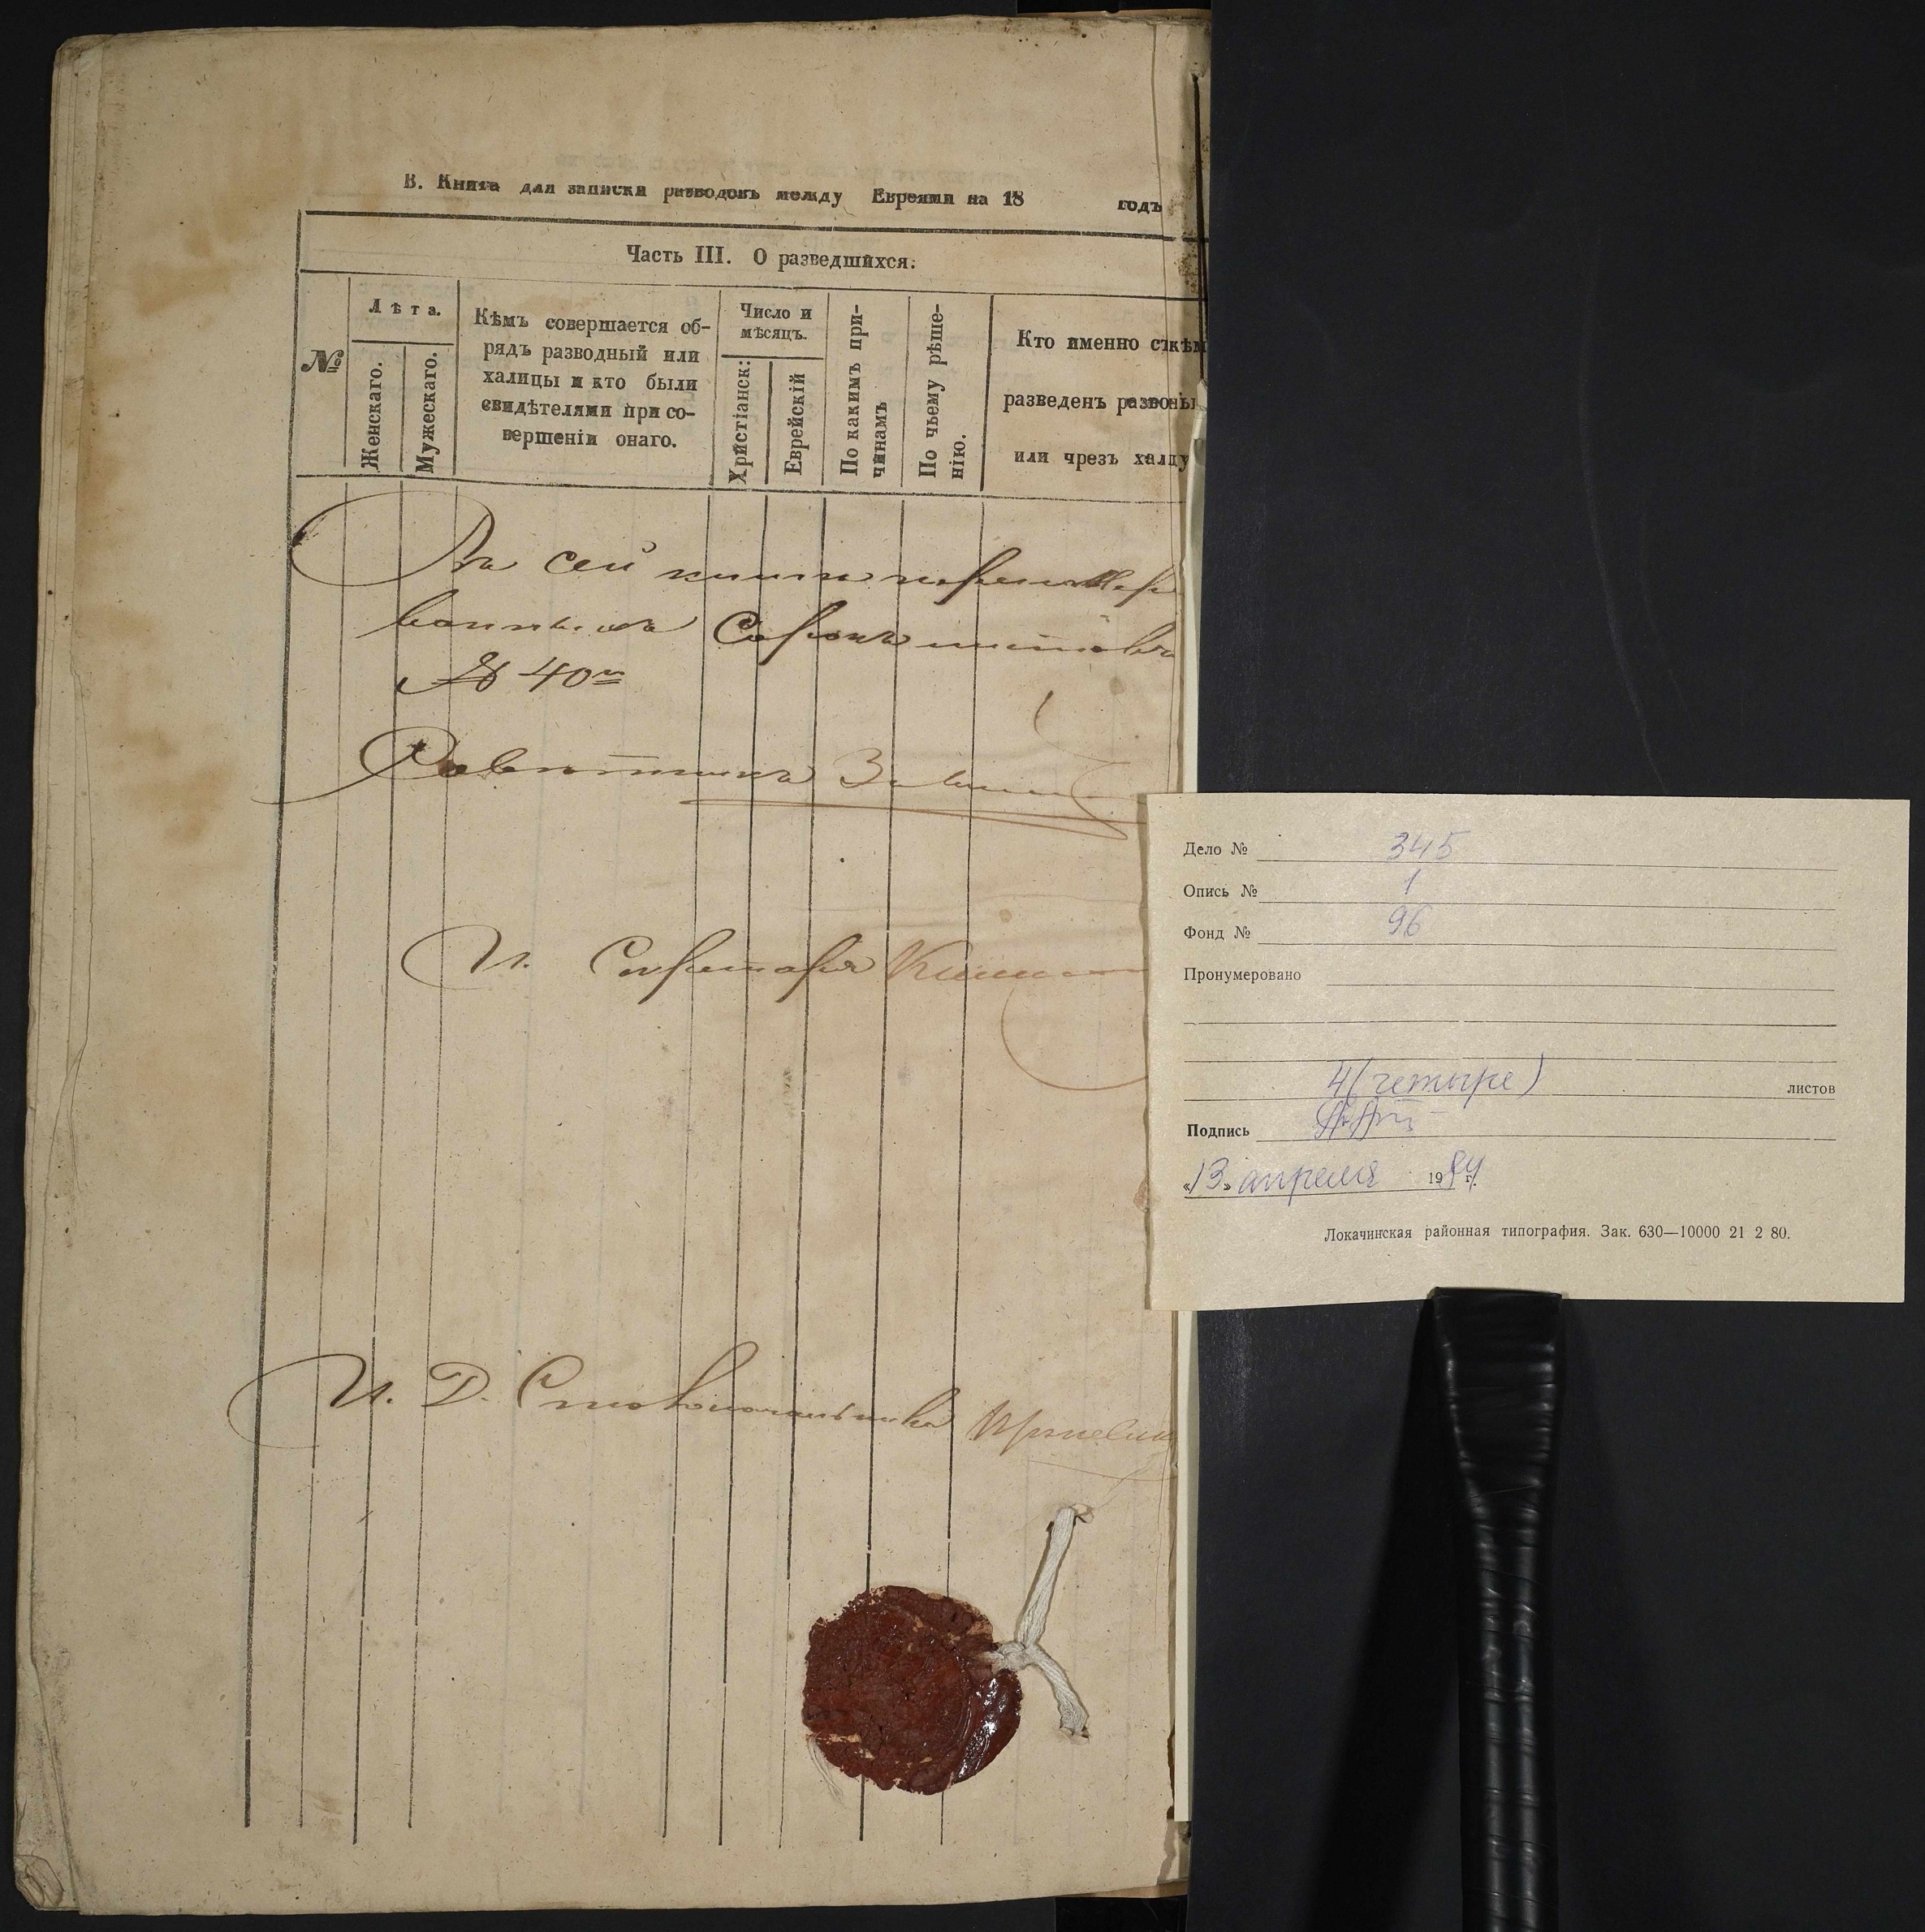 В. Книга для записки разводовъ между Евреями на 18 годъ
Часть III. О разведшихся.
№
Лѣта.
Женскаго.
Мужескаго.
Кѣмъ совершается об-
рядъ разводный или
халицы и кто были
свидѣтелями при со-
вершеніи онаго.
Число и
мѣсяцъ.
Христіанск:
Еврейскій
По какимъ при-
чинамъ
По чьему рѣше-
нію.
Кто именно с кѣм
разведенъ
или чрезъ халиц
сей книги
Сорокъ листовъ
40
Ратманъ
И. Секретаря
И. Д. Столоначальника
Дело № 345
Опись № 1
Фонд № 96
Пронумеровано
4 (четыре) листов
Подпись
«13» апреля 1984 г.
Локачинская районная типография. Зак. 630—10000 21 2 80.